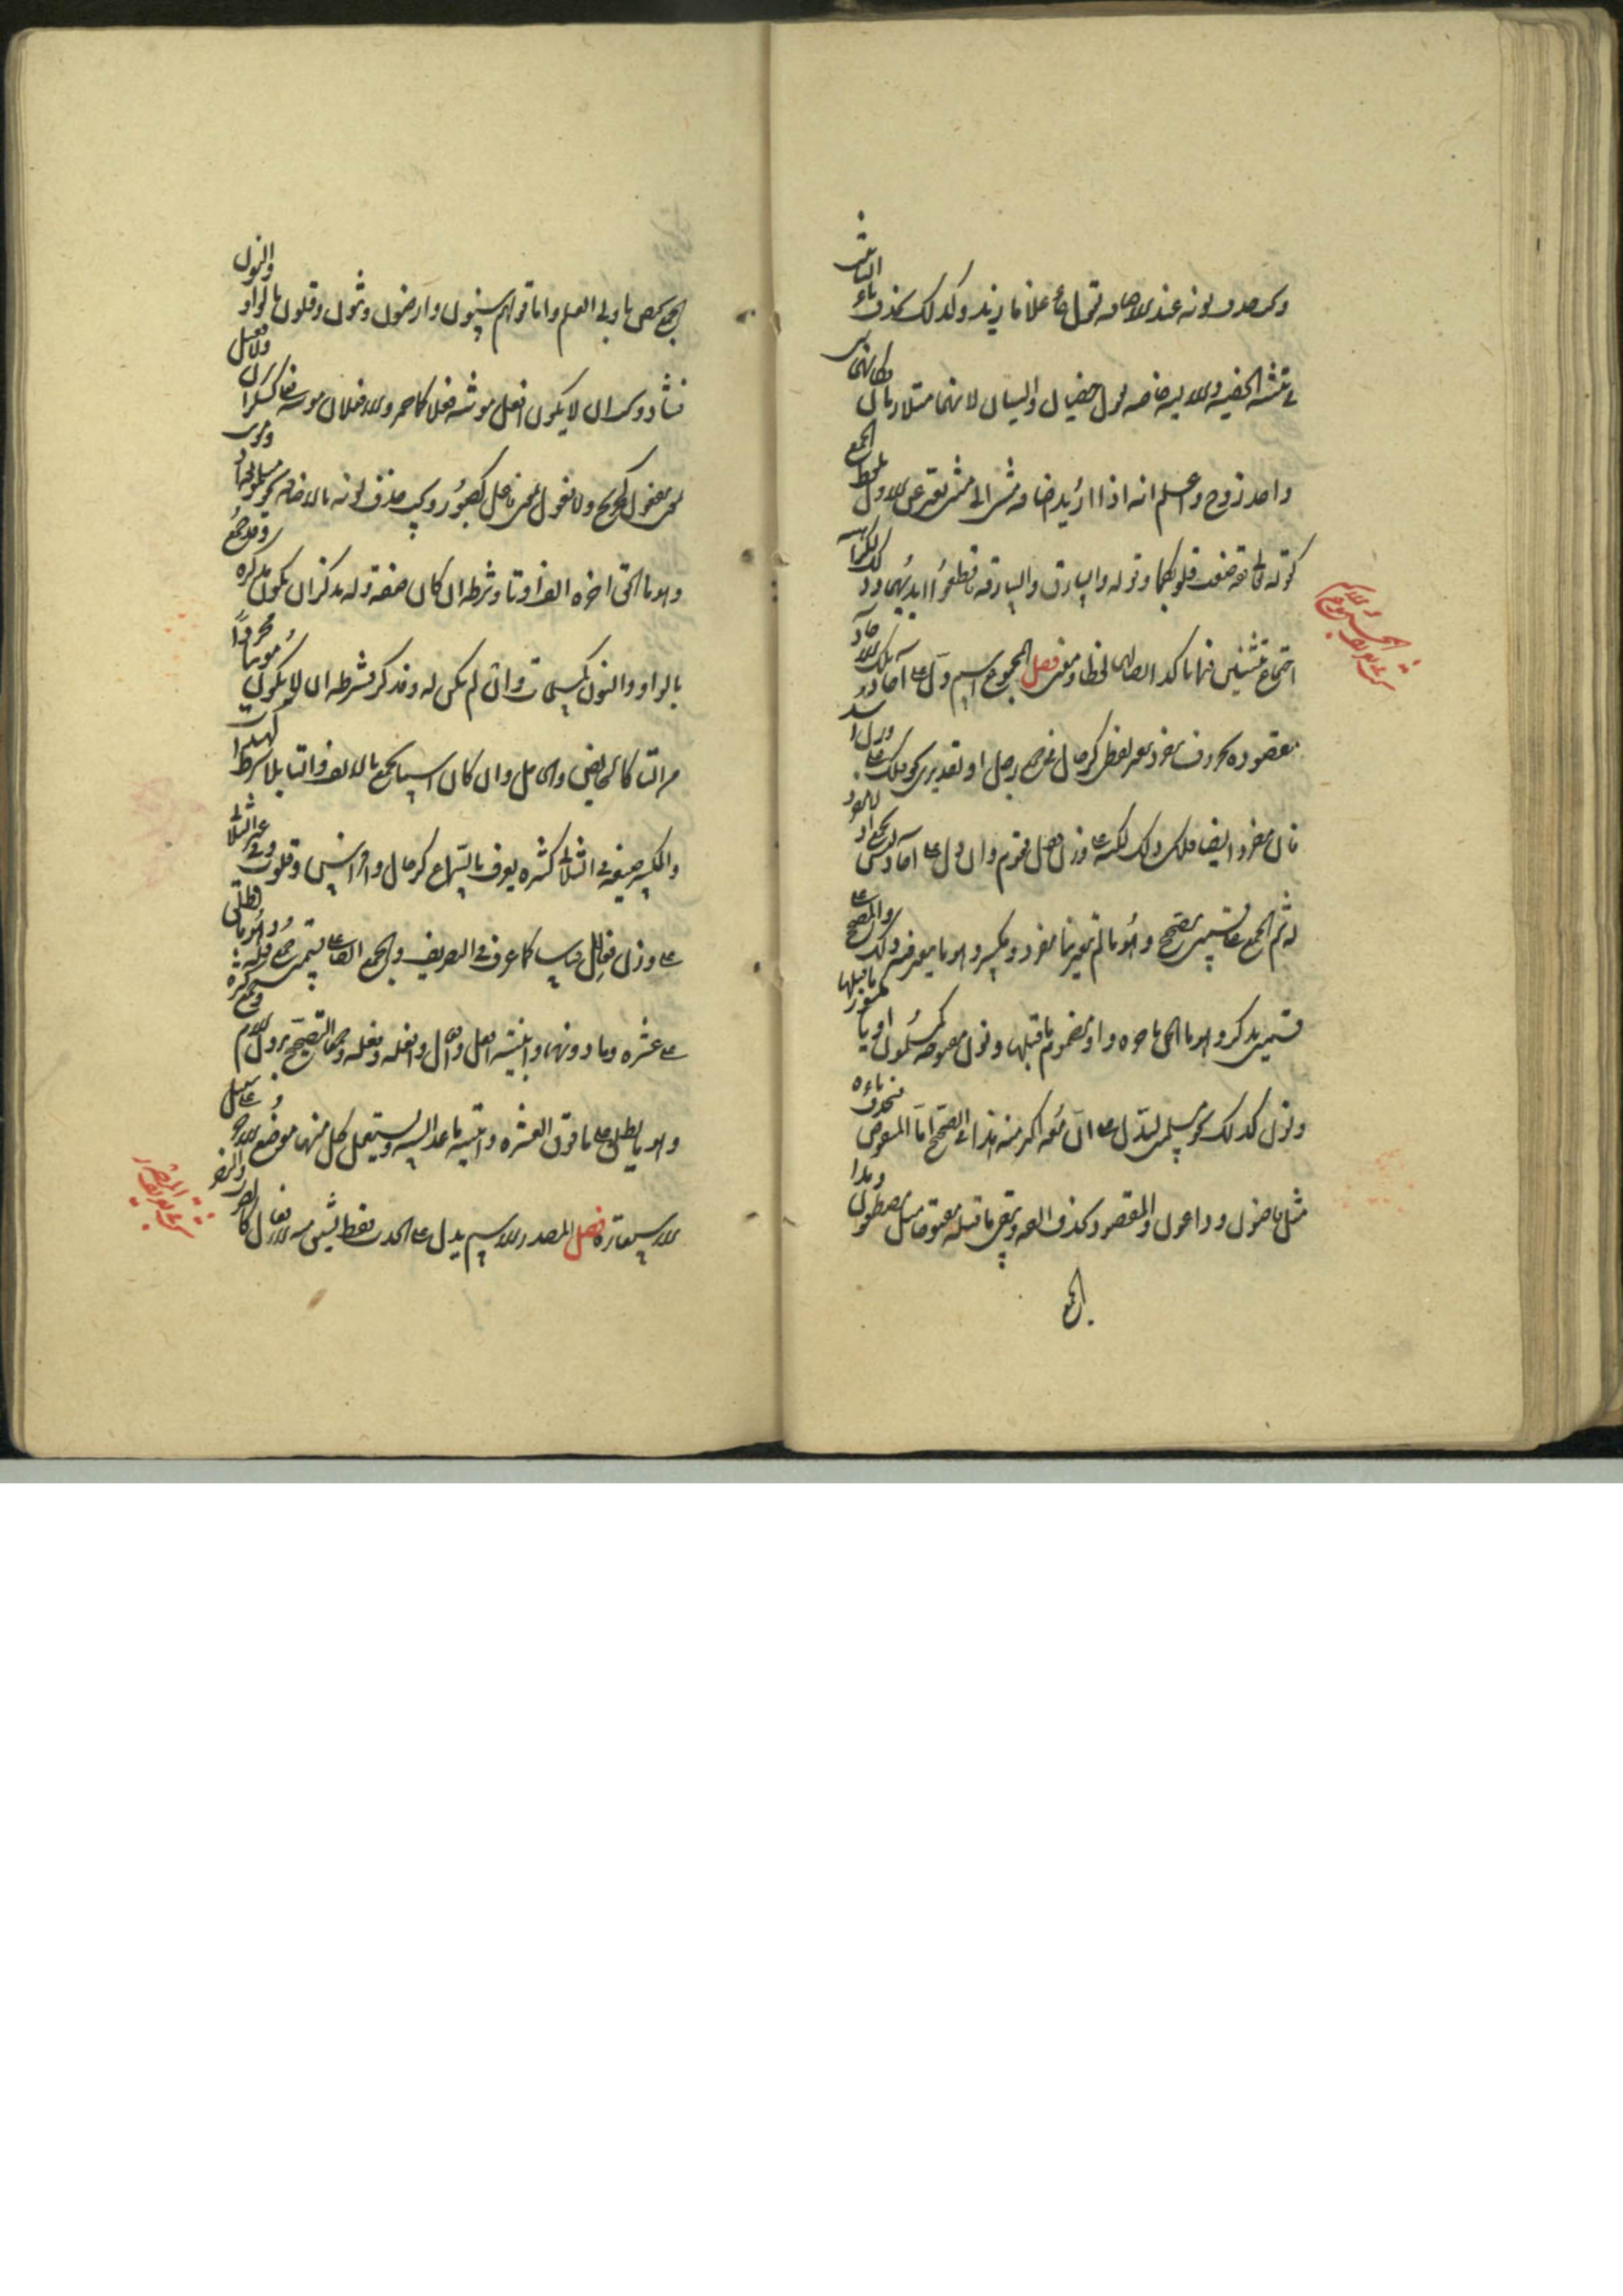 وكذلك تحذف تاء التانيث
في تثنية الخصية والالية خاصة تقول خصيان واليان لانهما متلازمان فكانهما
واحد زوج واعلم انه اذا اريد اضافة مثنى الى مثنى يعبر عن الاول بلفظ الجمع
كقوله تعالى فقد صغت قلوبكما وقوله والسارق والسارقة فاقطعوا ايديهما وذلك لكراهة
اجتماع تثنيتين فيما تاكد لفظا ومعنى فصل المجموع اسم دل على آحاد تلك الاحاد
مقصودة بحروف مفرده كرجال في جمع رجل او تقديري كفلك على وزن اسد
فان مفرده ايضا فلك على وزن قفل فقوم وان دل على آحاد ليس بجمع اذ لا مفرد
له ثم الجمع على قسمين مصحح وهو ما لم يتغير بناء مفرده ومكسر وهو ما يتغير فيه ذلك والمصحح على
قسمين مذكر وهو ما الحق باخره واو مضموم ما قبلها ونون مفتوحة كمسلمون او ياء مكسور ما قبلها
ونون كذلك نحو مسلمين ليدل على ان معه اكثر منه هذا في الصحيح اما المنقوص فتحذف ياءه
مثل قاضون وداعون والمقصور يحذف الفه ويبقى ما قبله مفتوحا مثل مصطفون وهذا
الجمع
الجمع مختص باولي العلم واما قولهم سنون وارضون وثبون وقلون بالواو والنون
فشاذ ويجب ان لا يكون افعل مؤنثه فعلاء كاحمر ولا فعلان مؤنثه فعلى كسكران ولا فعيل
بمعنى مفعول كجريح ولا فعول بمعنى فاعل كصبور ويجب حذف نونه بالاضافة نحو مسلمو مصر ومؤنث
وهو ما الحق اخره الف وتاء وشرطه ان كان صفة وله مذكر ان يكون مذكره قد جمع
بالواو والنون كمسلمات وان لم يكن له مذكر فشرطه ان لا يكون مؤنثا مجردا
من التاء كالحائض والحامل وان كان اسما يجمع بالالف والتاء بلا شرط كهندات
والمكسر صيغته في الثلاثي كثيرة يعرف بالسماع كرجال وافراس وقلوب وفي غير الثلاثي
على وزن فعالل قياسا كما عرف في التصريف والجمع ايضا على قسمين جمع قلة وهو ما يطلق
على عشرة وما دونها وابنيته افعل وافعال وافعلة وفعلة وجمعا التصحيح بدون اللام وجمع كثرة
وهو ما يطلق على ما فوق العشرة وابنيته ما عدا ويستعمل كل منهما موضع الاخر على سبيل
الاستعارة فصل المصدر اسم يدل على الحدث فقط يشتق منه الافعال كالضرب والنصر